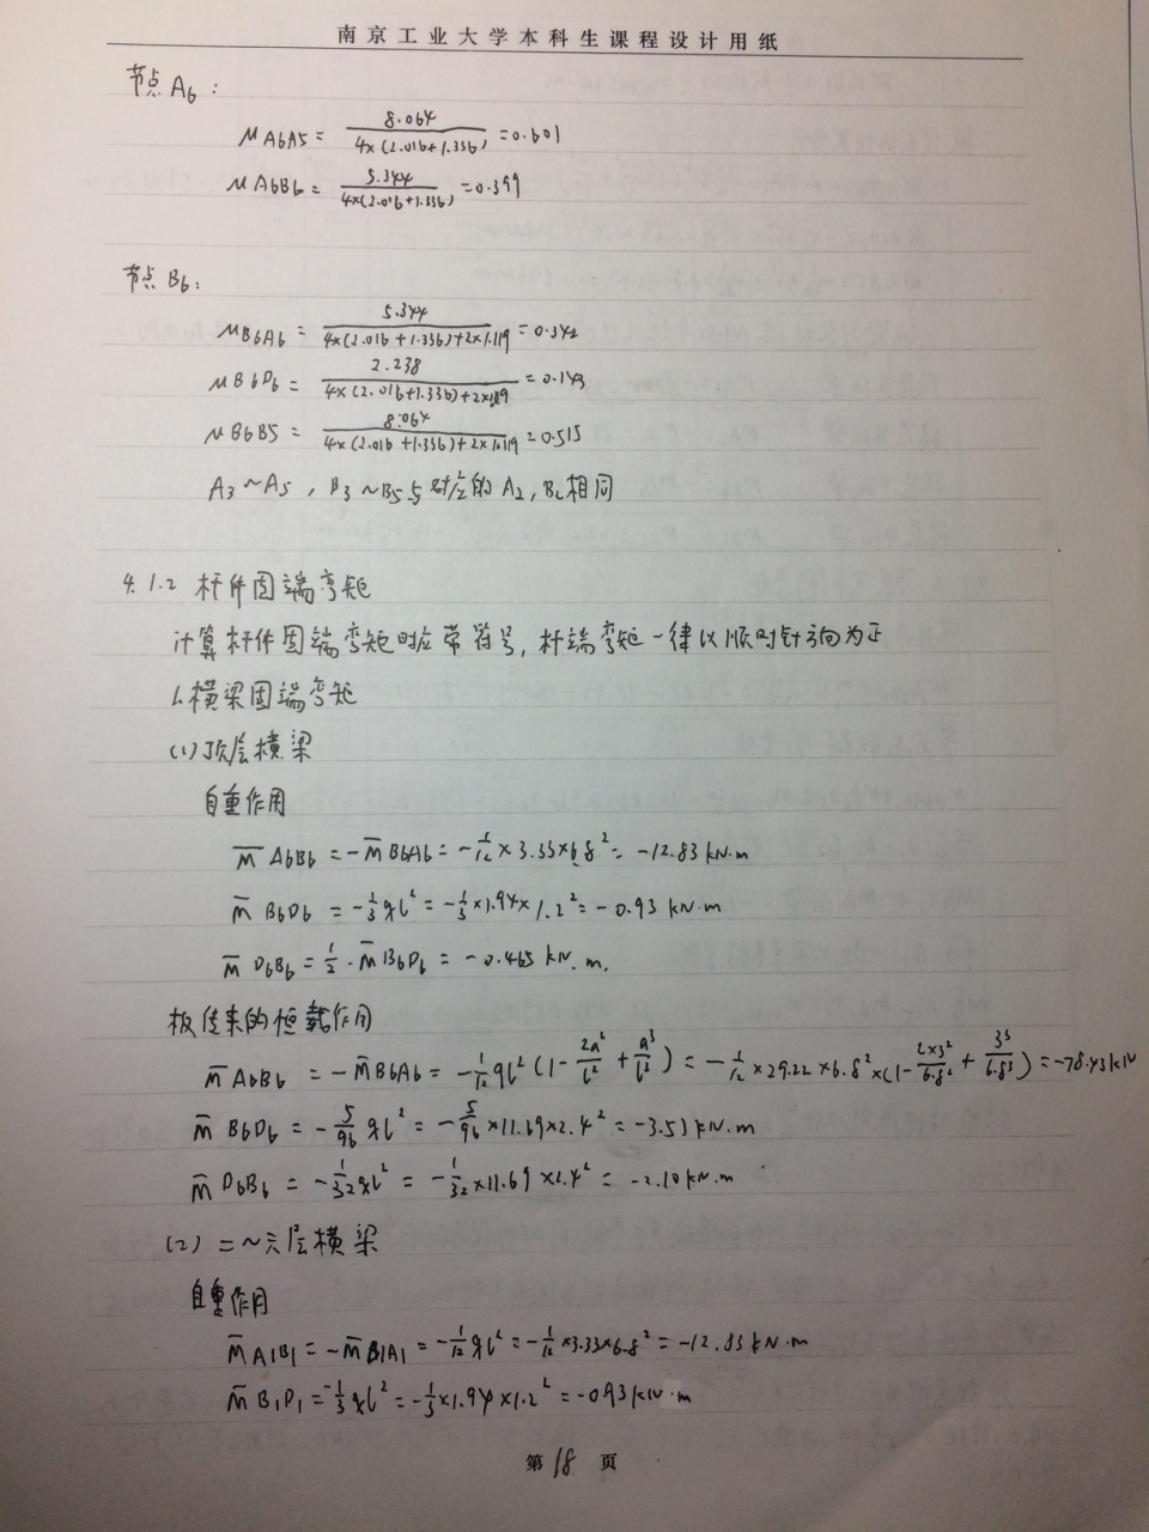 南京工业大学本科生课程设计用纸
节点A6:
μA6A5 = 8.064 / 4×(2.016+1.336) = 0.601
μA6B6 = 5.344 / 4×(2.016+1.336) = 0.399
节点B6:
μB6A6 = 5.344 / 4×(2.016+1.336)+2×1.119 = 0.342
μB6D6 = 2.238 / 4×(2.016+1.336)+2×1.119 = 0.143
μB6B5 = 8.064 / 4×(2.016+1.336)+2×1.119 = 0.515
A3~A5, B3~B5与对应的A2,B2相同
4.1.2 杆件固端弯矩
计算杆件固端弯矩时应带符号,杆端弯矩一律以顺时针方向为正
1.横梁固端弯矩
(1)顶层横梁
自重作用
M̄A6B6 = -M̄B6A6 = -1/12×3.33×6.8² = -12.83 kN·m
M̄B6D6 = -1/3ql² = -1/3×1.94×1.2² = -0.93 kN·m
M̄D6B6 = 1/2·M̄B6D6 = -0.465 kN.m.
板传来的恒载作用
M̄A6B6 = -M̄B6A6 = -1/12ql²(1-2a²/l²+a³/l³) = -1/12×29.22×6.8²×(1-2×3²/6.8²+3³/6.8³) = -78.43kN
M̄B6D6 = -5/96ql² = -5/96×11.69×2.4² = -3.51kN.m
M̄D6B6 = -1/32ql² = -1/32×11.69×2.4² = -2.10kN.m
(2)二~六层横梁
自重作用
M̄A1B1 = -M̄B1A1 = -1/12ql² = -1/12×3.33×6.8² = -12.83kN·m
M̄B1D1 = -1/3ql² = -1/3×1.94×1.2² = -0.93kN·m
第18页